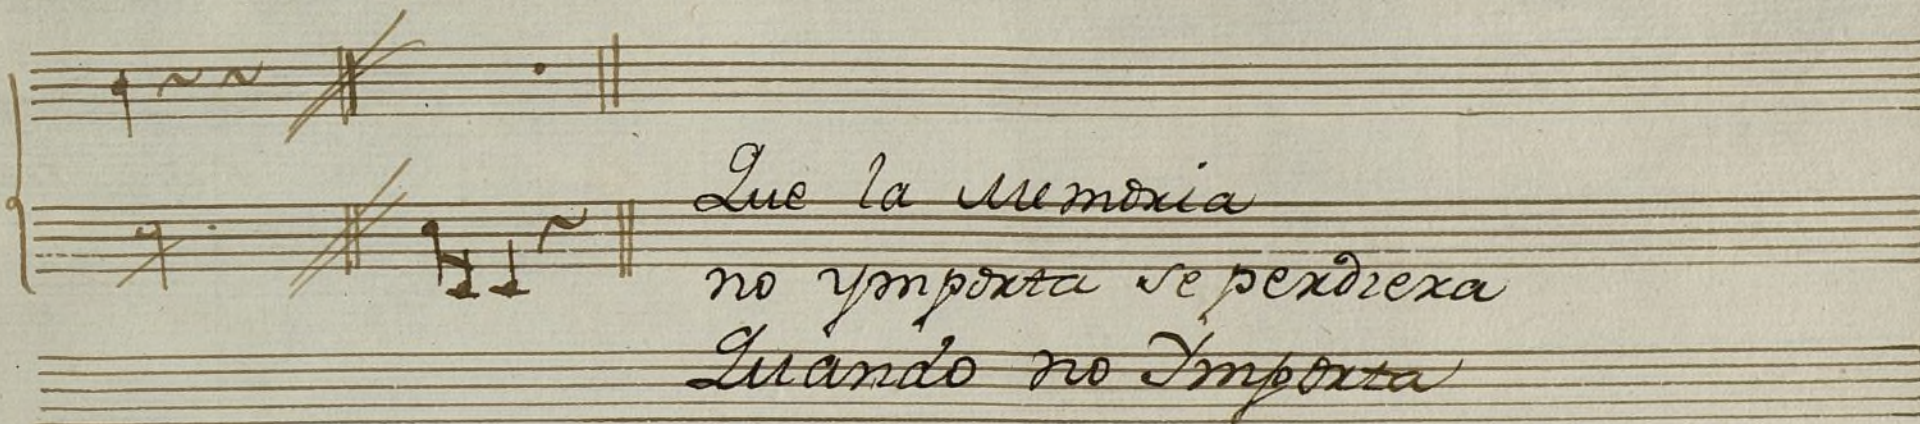 Que la Memoria
no ymporta se perdiera
Quando no Ymporta